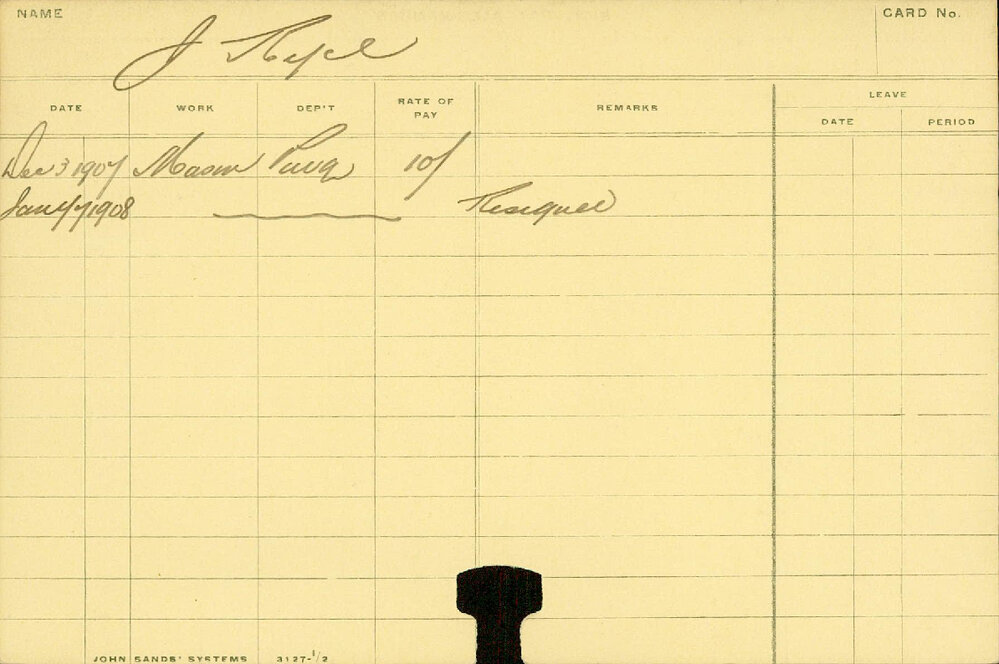 NAME
CARD No.
J
DATE WORK DEP'T RATE OF PAY REMARKS LEAVE
DATE PERIOD
Dec 3 1907 Mason 10/
Jan 1908 Resigned
JOHN SANDS' SYSTEMS 3127-1/2